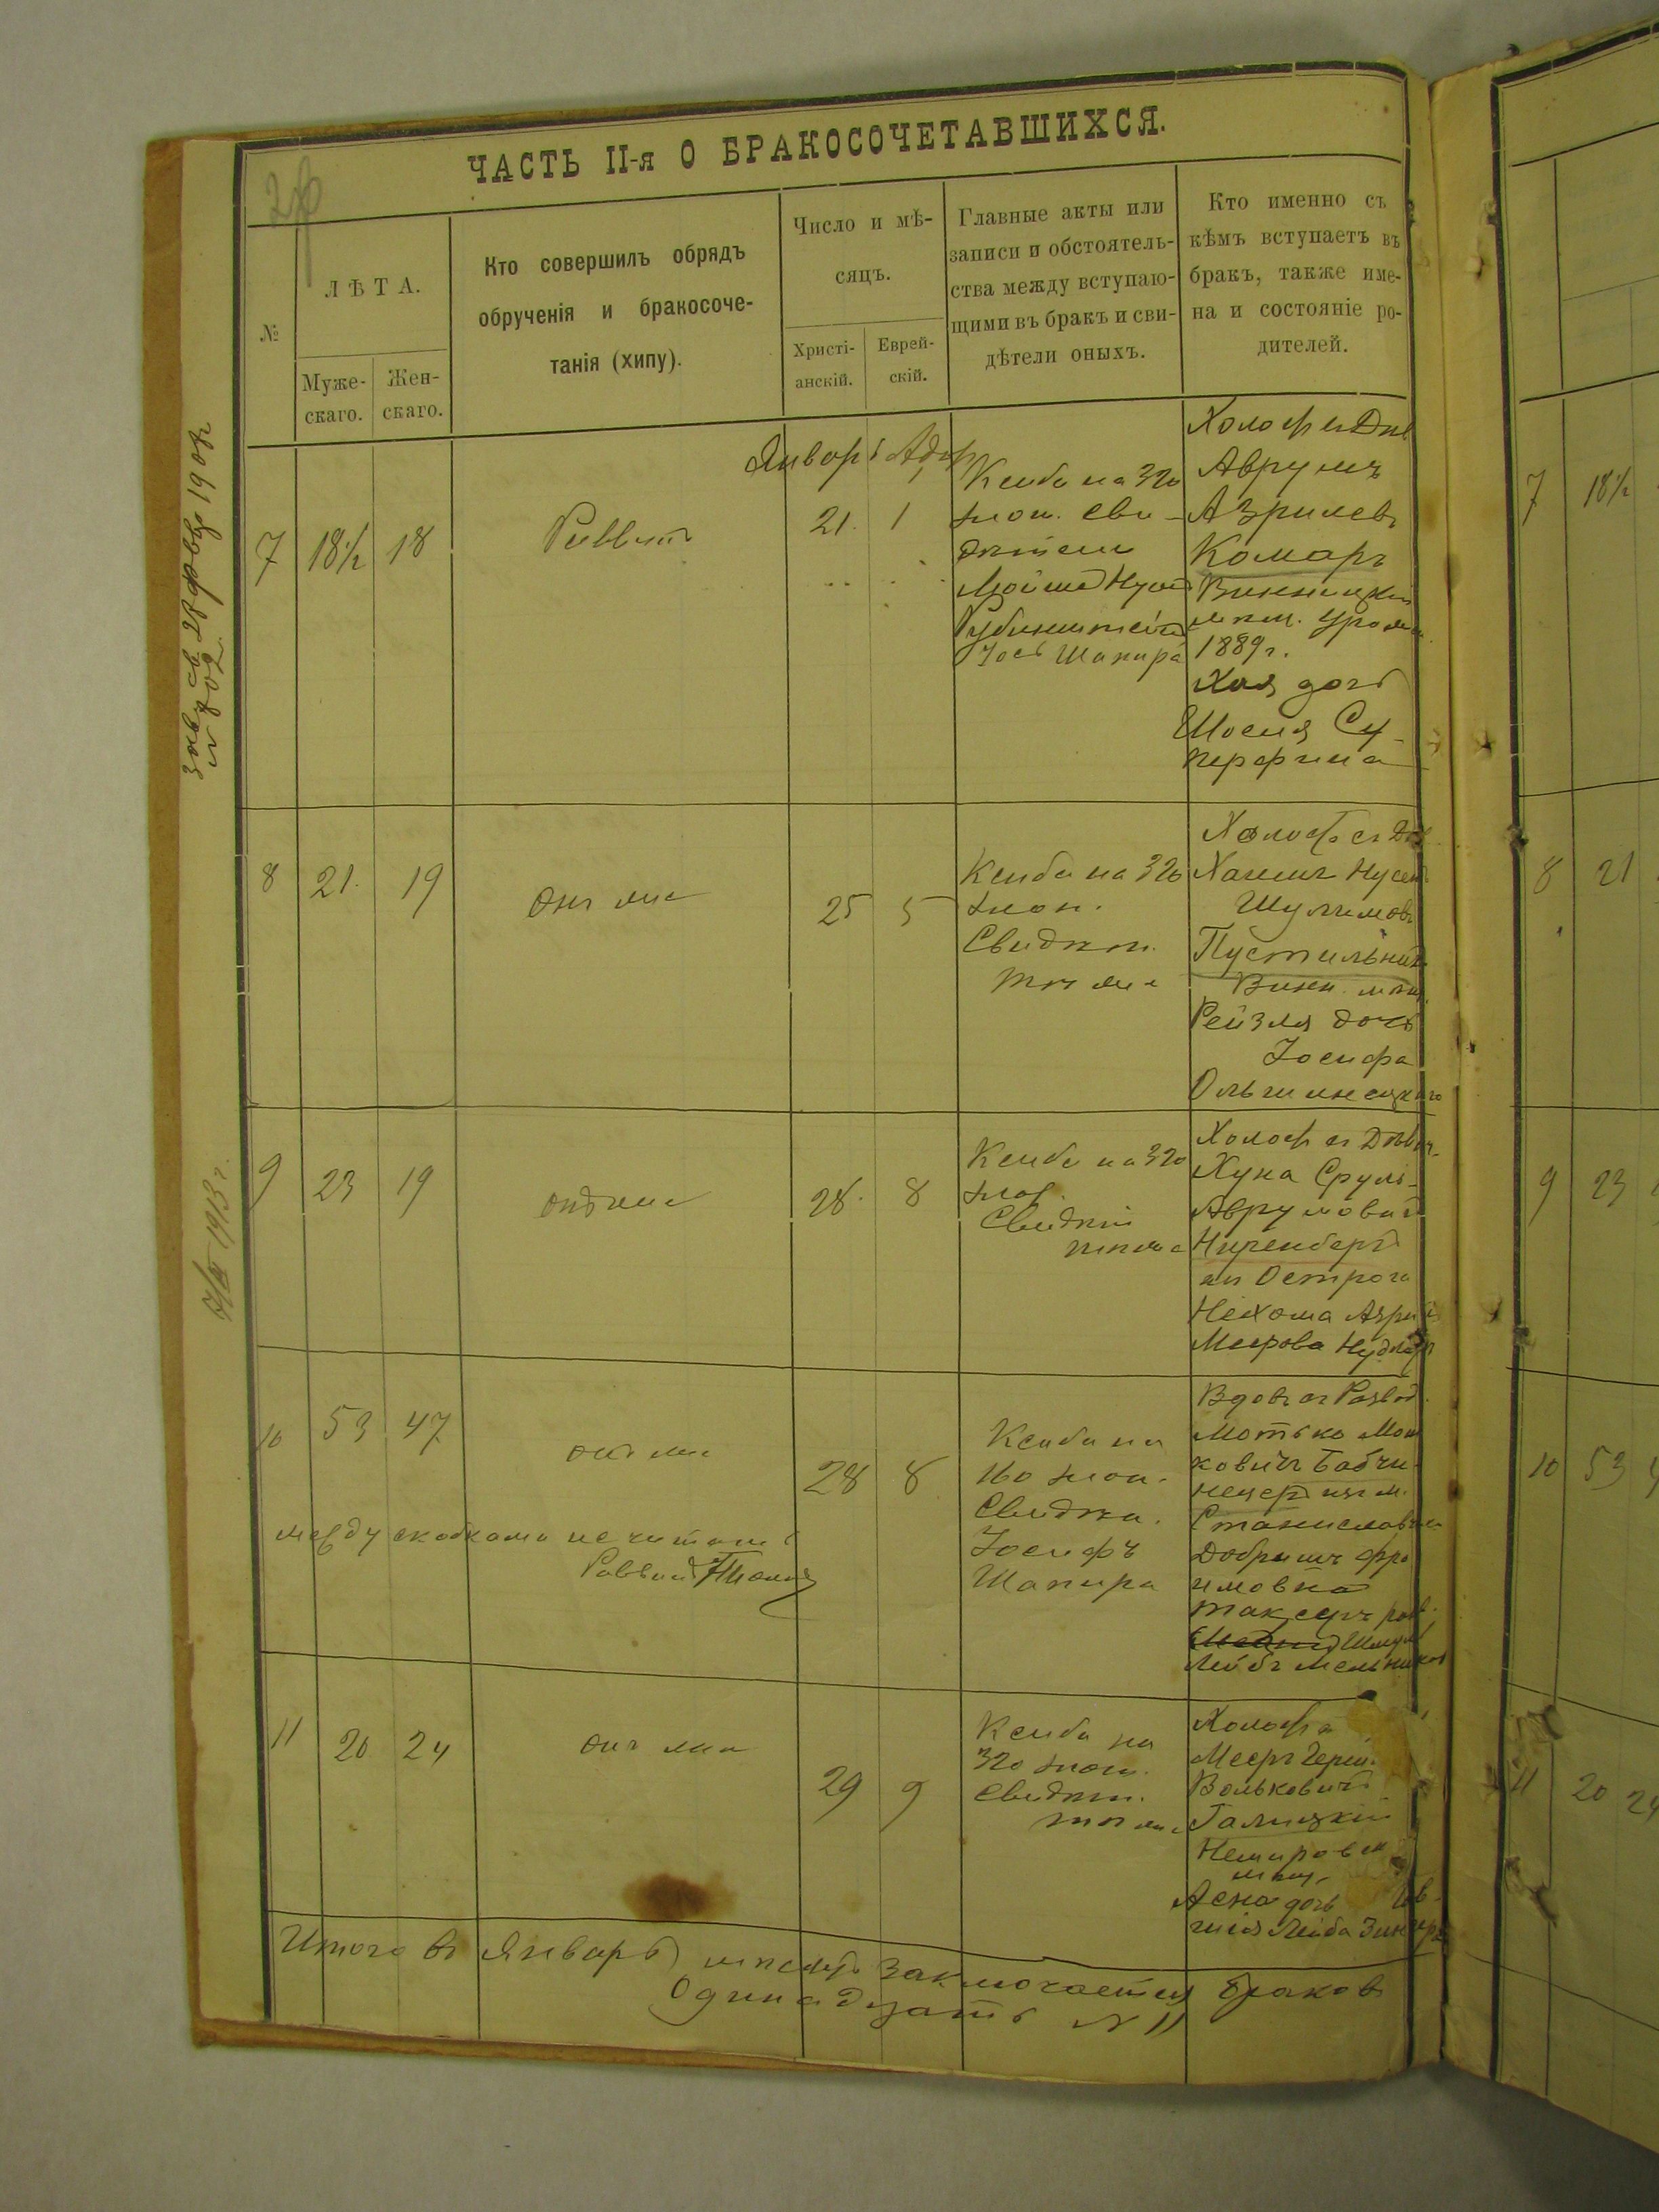 ЧАСТЬ II-я О БРАКОСОЧЕТАВШИХСЯ.
№
ЛѢТА.
Муже-
скаго.
Жен-
скаго.
Кто совершилъ обрядъ
обрученія и бракосоче-
танія (хипу).
Число и мѣ-
сяцъ.
Христі-
анскій.
Еврей-
скій.
Главные акты или
записи и обстоятель-
ства между вступаю-
щими въ бракъ и сви-
дѣтели оныхъ.
Кто именно съ
кѣмъ вступаетъ въ
бракъ, также име-
на и состояніе ро-
дителей.
Январь Адар
7 18½ 18
Раввинъ
21. 1
Ксиба на 32о
злот. Сви-
дѣтели
Мойше Нусен
Рубинштейн
Іось Шапира
Холост съ Дѣв
Аврумъ
Азрилевъ
Комаръ
Винницкій
мѣщ. урожен.
1889 г.
Хая дочь
Шоеля Су-
перфина
8 21. 19
Онъ же
25 5
Ксиба на 32о
злот.
Свидѣт.
тѣ же
Холост съ Дѣв
Хаимъ Нусен
Шулимовъ
Пустильник
Винн. мѣщ.
Рейзля дочь
Іосифа
Ольшинецкаго
9 23 19
онъ же
28. 8
Ксиба на 32о
злот.
Свидѣт
тѣ же
Холост съ Дѣвиц.
Хуна Сруль-
Аврумович
Ниренбергъ
изъ Острога
Нехома Азрил
Меерова Нудлер
10 53 47
онъ же
28 8
Ксиба на
16о злот.
Свидѣт.
Іосифъ
Шапира
Вдовъ съ Развод.
Мотько Мош
ковичъ Бабчи-
нецер изъ м.
Станиславчик
Добрышъ Фро
имовна
Шмуль
Лейбъ Мельников
между скобками не читать
Раввин
11 20 24
Онъ же
29 9
Ксиба на
32о злот.
Свидѣт.
тѣ же
Холост съ
Мееръ Герш.
Вольковичъ
Галицкій
Немировск
мѣщ.
Асна дочь
Лейба Зингера
Итого въ Январѣ мѣсяцѣ заключается браковъ
Одинадцать № 11
7 18½
8 21
9 23
10 53
11 20 24